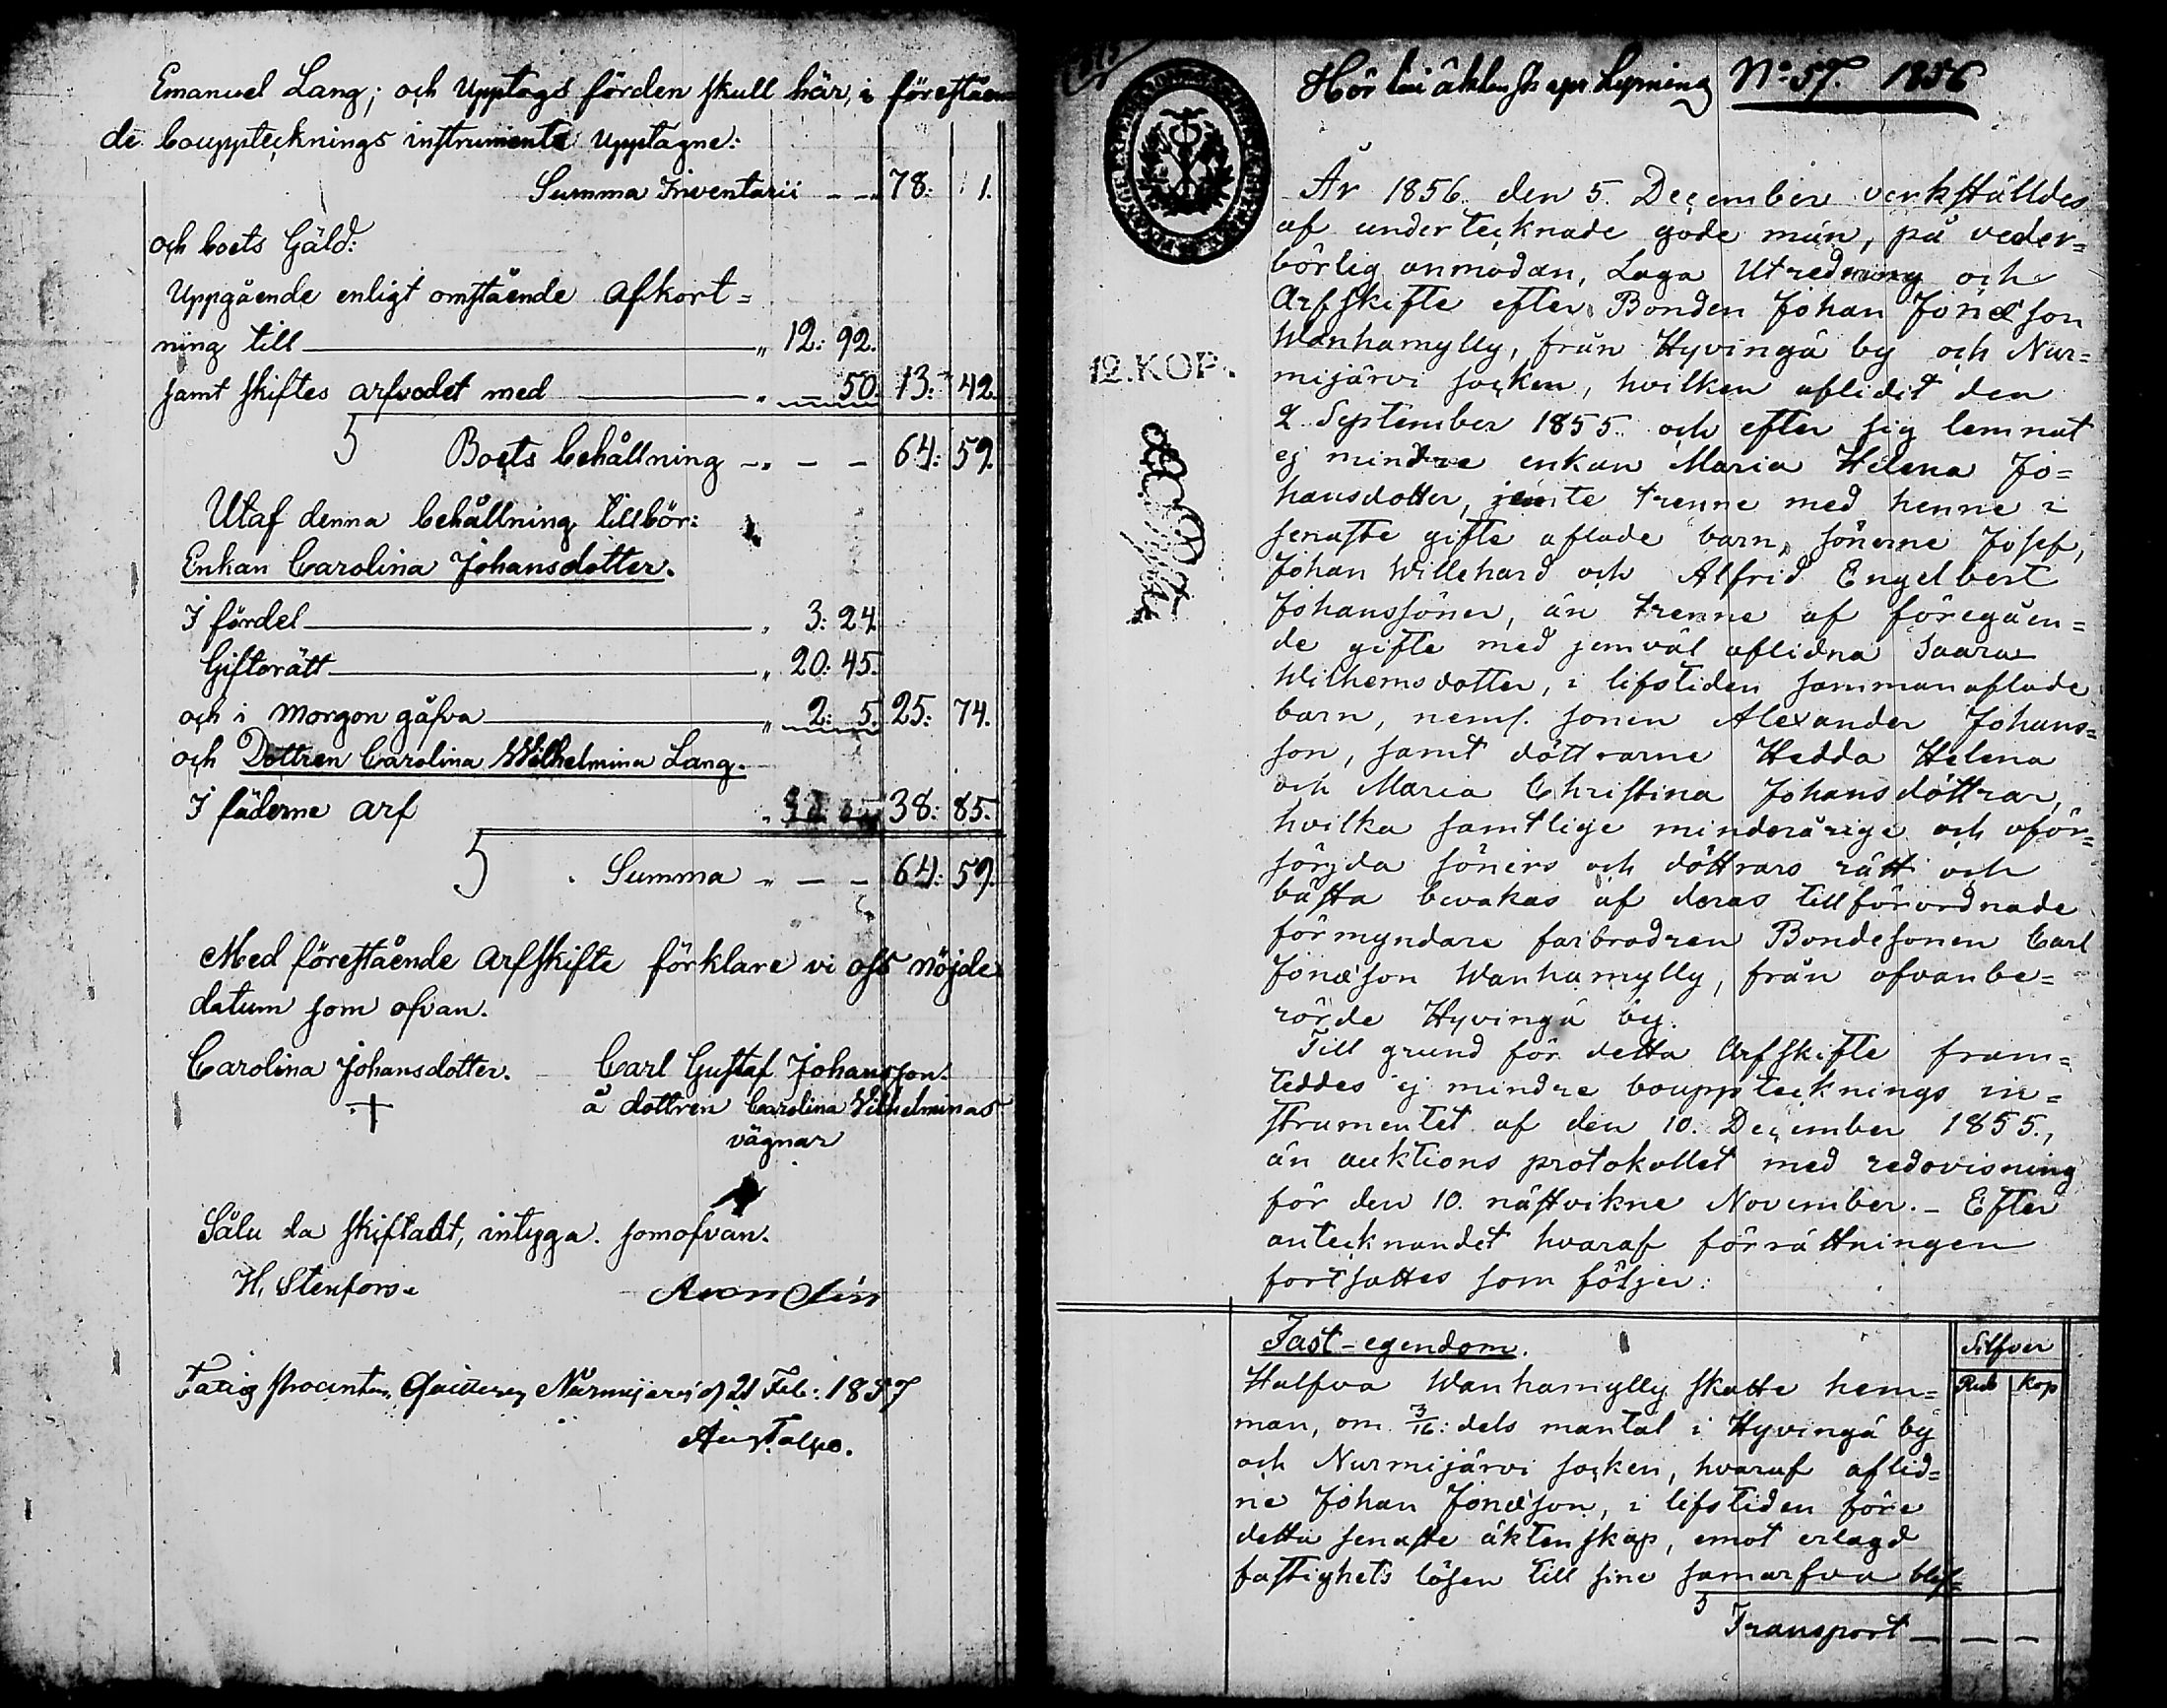 Emanuel Lang; och Upptogs förden skull här, i föreståen-
de bouppteknings instrumente upptagne:
Summa Inventarii - - „ 78: 1.
och boets Gäld:
Uppgående enligt omstående afkort=
ning till „ 12: 92.
samt skiftes arfvodet med „ 50. 13: 42.
Boets behållning - „ - - 64: 59.
Utaf denna behållning tillhör:
Enkan Carolina Johansdotter.
I fördel „ 3: 24.
Giftorätt „ 20: 45.
och i morgon gåfva „ 2: 5. 25: 74.
och Dottren Carolina Wilhelmina Lang.
I fäderne arf „ 38: 85.
Summa „ - - 64: 59.
Med förestående arfskifte förklare vi oss nöjde
datum som ofvan.
Carolina Johansdotter. Carl Gustaf Johansson.
å dottren Carolina Wilhelminas
vägnar
Sålu da skiftadt, intyga. somofvan.
H. Stenfors.
Nurmijervi d 21 Feb: 1857
N:o 57. 1856
12. KOP.
År 1856. den 5. December verkställdes
af undertecknade gode män, på veder=
börlig anmodan, Laga Utredning och
Arfskifte efter Bonden Johan Jonæson
Wanhamylly, från Hyvingä by och Nur=
mijärvi socken, hvilken aflidit den
2 September 1855. och efter sig lemnat
ej mindre enkan Maria Helena Jo=
hansdotter, jemte trenne med henne i
senaste gifte aflade barn, sönerne Josef,
Johan Willehard och Alfrid Engelbert
Johanssöner, än trenne af föregåen=
de gifte med jemväl aflidna Saara
Wilhemsdotter, i lifstiden sammanaflade
barn, neml. sonen Alexander Johans=
son, samt döttrarne Hedda Helena
och Maria Christina Johansdöttrar,
hvilka samtlige minderårige och oför=
sörjda söners och döttrars rätt och
bästa bevakas af deras tillförordnade
förmyndare farbrodren Bondesonen Carl
Jonæson Wanhamylly, från ofvanbe=
rörde Hyvingä by.
Till grund för detta Arfskifte fram=
teddes ej mindre bouppteknings in=
strumentet af den 10. December 1855.,
än auktions protokollet med redovisning
för den 10. nästvikne November. - Efter
antecknandet hvaraf förrättningen
fortsattes som följer:
Fast-egendom. Silfver
Rub Kop
Halfva Wanhamylly skatte hem=
man, om 3/16: dels mantal i Hyvingä by
och Nurmijärvi socken, hvaraf aflid=
ne Johan Jonæson, i lifstiden före
detta senaste äktenskap, emot erlagd
fastighets lösen till sine samarfva blif=
Transport - - -